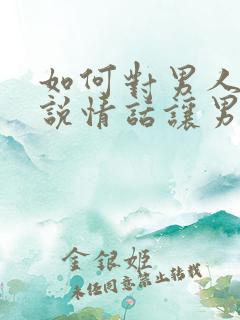 如何對男人
說情話讓男
金銀姬
未经同意禁止转载